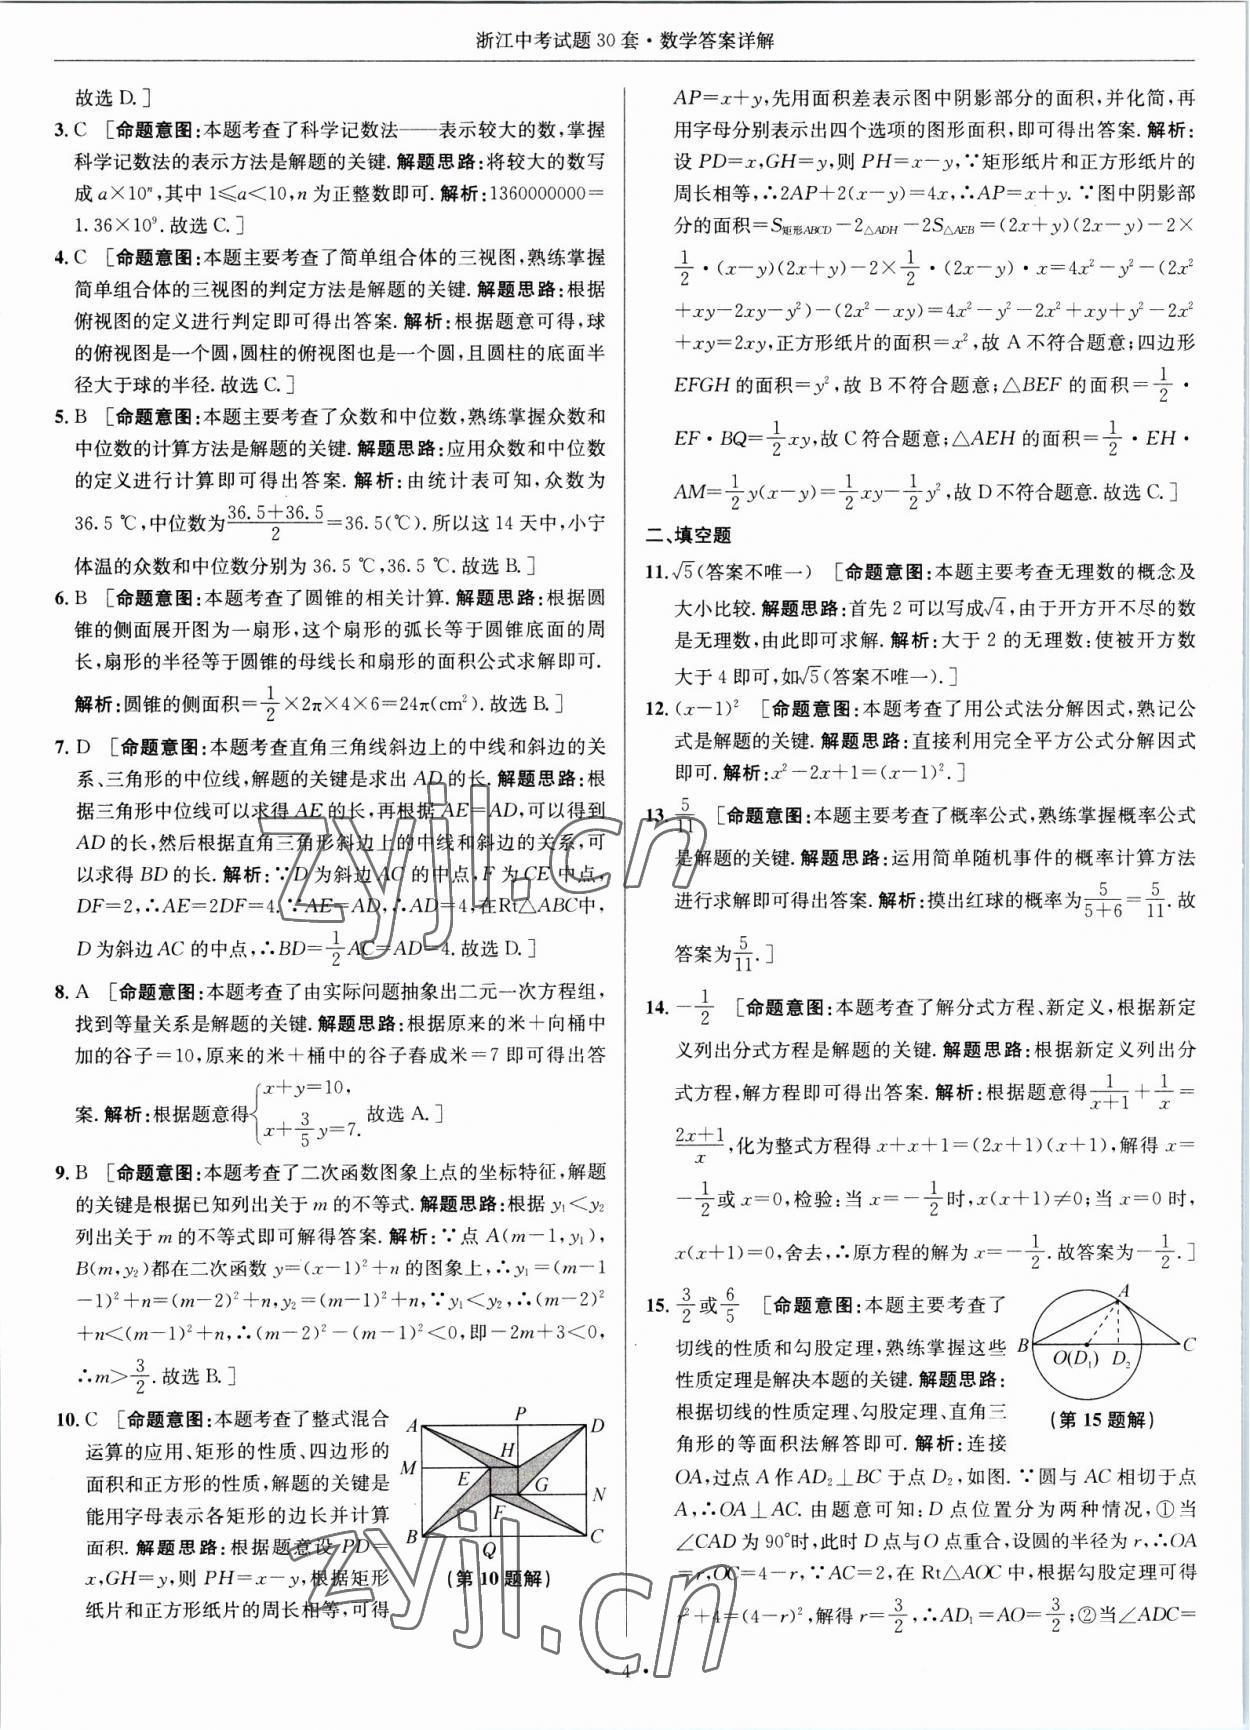 浙江中考试题30套·数学答案详解
故选D.]
3. C [命题意图:本题考查了科学记数法——表示较大的数,掌握
科学记数法的表示方法是解题的关键.解题思路:将较大的数写
成a×10ⁿ,其中1≤a<10,n为正整数即可.解析:1360000000=
1.36×10⁹.故选C.]
4. C [命题意图:本题主要考查了简单组合体的三视图,熟练掌握
简单组合体的三视图的判定方法是解题的关键.解题思路:根据
俯视图的定义进行判定即可得出答案.解析:根据题意可得,球
的俯视图是一个圆,圆柱的俯视图也是一个圆,且圆柱的底面半
径大于球的半径.故选C.]
5. B [命题意图:本题主要考查了众数和中位数,熟练掌握众数和
中位数的计算方法是解题的关键.解题思路:应用众数和中位数
的定义进行计算即可得出答案.解析:由统计表可知,众数为
36.5 ℃,中位数为(36.5+36.5)/2=36.5(℃).所以这14天中,小宁
体温的众数和中位数分别为36.5 ℃,36.5 ℃.故选B.]
6. B [命题意图:本题考查了圆锥的相关计算.解题思路:根据圆
锥的侧面展开图为一扇形,这个扇形的弧长等于圆锥底面的周
长,扇形的半径等于圆锥的母线长和扇形的面积公式求解即可.
解析:圆锥的侧面积=1/2×2π×4×6=24π(cm²).故选B.]
7. D [命题意图:本题考查直角三角线斜边上的中线和斜边的关
系、三角形的中位线,解题的关键是求出AD的长.解题思路:根
据三角形中位线可以求得AE的长,再根据AE=AD,可以得到
AD的长,然后根据直角三角形斜边上的中线和斜边的关系,可
以求得BD的长.解析:∵D为斜边AC的中点,F为CE中点,
DF=2,∴AE=2DF=4.∵AE=AD,∴AD=4,在Rt△ABC中,
D为斜边AC的中点,∴BD=1/2AC=AD=4.故选D.]
8. A [命题意图:本题考查了由实际问题抽象出二元一次方程组,
找到等量关系是解题的关键.解题思路:根据原来的米+向桶中
加的谷子=10,原来的米+桶中的谷子舂成米=7即可得出答
案.解析:根据题意得{x+y=10, x+3/5y=7. 故选A.]
9. B [命题意图:本题考查了二次函数图象上点的坐标特征,解题
的关键是根据已知列出关于m的不等式.解题思路:根据y₁<y₂
列出关于m的不等式即可解得答案.解析:∵点A(m-1,y₁),
B(m,y₂)都在二次函数y=(x-1)²+n的图象上,∴y₁=(m-1
-1)²+n=(m-2)²+n,y₂=(m-1)²+n,∵y₁<y₂,∴(m-2)²
+n<(m-1)²+n,∴(m-2)²-(m-1)²<0,即-2m+3<0,
∴m>3/2.故选B.]
10. C [命题意图:本题考查了整式混合
运算的应用、矩形的性质、四边形的
面积和正方形的性质,解题的关键是
能用字母表示各矩形的边长并计算
面积.解题思路:根据题意设PD=
x,GH=y,则PH=x-y,根据矩形
纸片和正方形纸片的周长相等,可得
A P D
H
M E
G N
F
B Q C
(第10题解)
AP=x+y,先用面积差表示图中阴影部分的面积,并化简,再
用字母分别表示出四个选项的图形面积,即可得出答案.解析:
设PD=x,GH=y,则PH=x-y,∵矩形纸片和正方形纸片的
周长相等,∴2AP+2(x-y)=4x,∴AP=x+y.∵图中阴影部
分的面积=S矩形ABCD-2△ADH-2S△AEB=(2x+y)(2x-y)-2×
1/2·(x-y)(2x+y)-2×1/2·(2x-y)·x=4x²-y²-(2x²
+xy-2xy-y²)-(2x²-xy)=4x²-y²-2x²+xy+y²-2x²
+xy=2xy,正方形纸片的面积=x²,故A不符合题意;四边形
EFGH的面积=y²,故B不符合题意;△BEF的面积=1/2·
EF·BQ=1/2xy,故C符合题意;△AEH的面积=1/2·EH·
AM=1/2y(x-y)=1/2xy-1/2y²,故D不符合题意.故选C.]
二、填空题
11. √5(答案不唯一) [命题意图:本题主要考查无理数的概念及
大小比较.解题思路:首先2可以写成√4,由于开方开不尽的数
是无理数,由此即可求解.解析:大于2的无理数:使被开方数
大于4即可,如√5(答案不唯一).]
12. (x-1)² [命题意图:本题考查了用公式法分解因式,熟记公
式是解题的关键.解题思路:直接利用完全平方公式分解因式
即可.解析:x²-2x+1=(x-1)².]
13. 5/11 [命题意图:本题主要考查了概率公式,熟练掌握概率公式
是解题的关键.解题思路:运用简单随机事件的概率计算方法
进行求解即可得出答案.解析:摸出红球的概率为5/(5+6)=5/11.故
答案为5/11.]
14. -1/2 [命题意图:本题考查了解分式方程、新定义,根据新定
义列出分式方程是解题的关键.解题思路:根据新定义列出分
式方程,解方程即可得出答案.解析:根据题意得1/(x+1)+1/x=
(2x+1)/x,化为整式方程得x+x+1=(2x+1)(x+1),解得x=
-1/2或x=0,检验:当x=-1/2时,x(x+1)≠0;当x=0时,
x(x+1)=0,舍去,∴原方程的解为x=-1/2.故答案为-1/2.]
15. 3/2或6/5 [命题意图:本题主要考查了
切线的性质和勾股定理,熟练掌握这些
性质定理是解决本题的关键.解题思路:
根据切线的性质定理、勾股定理、直角三
角形的等面积法解答即可.解析:连接
A
B O(D₁) D₂ C
(第15题解)
OA,过点A作AD₂⊥BC于点D₂,如图.∵圆与AC相切于点
A,∴OA⊥AC.由题意可知:D点位置分为两种情况,①当
∠CAD为90°时,此时D点与O点重合,设圆的半径为r,∴OA
=r,OC=4-r,∵AC=2,在Rt△AOC中,根据勾股定理可得
r²+4=(4-r)²,解得r=3/2,∴AD₁=AO=3/2;②当∠ADC=
· 4 ·
zyjl.cn
zyjl.cn